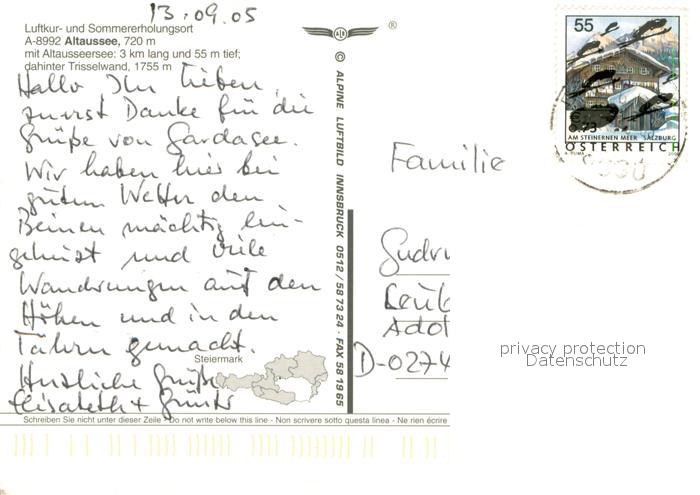 13.09.05
Luftkur- und Sommererholungsort
A-8992 Altaussee, 720 m
mit Altausseersee: 3 km lang und 55 m tief;
dahinter Trisselwand, 1755 m
Hallo Ihr Lieben,
zuerst Danke für die
Grüße von Gardasee.
Wir haben hier bei
gutem Wetter den
Beinen mächtig ein-
geheizt und viele
Wanderungen auf den
Höhen und in den
Tälern gemacht.
Herzliche Grüße
Elisabeth + Günter
Steiermark
Schreiben Sie nicht unter dieser Zeile - Do not write below this line - Non scrivere sotto questa linea - Ne rien écrire
® 
© ALPINE LUFTBILD INNSBRUCK 0512 / 58 73 24 · FAX 58 19 65
55
€ 0,73
AM STEINERNEN MEER SALZBURG
ÖSTERREICH
Familie
Gudru
Leub
Adol
D-0274
privacy protection
Datenschutz